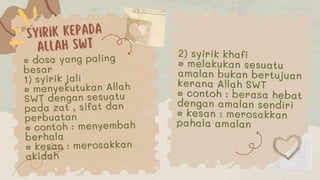 SYIRIK KEPADA
ALLAH SWT
# dosa yang paling
besar
1) syirik jali
# menyekutukan Allah
SWT dengan sesuatu
pada zat , sifat dan
perbuatan
# contoh : menyembah
berhala
# kesan : merosakkan
akidah
2) syirik khafi
# melakukan sesuatu
amalan bukan bertujuan
kerana Allah SWT
# contoh : berasa hebat
dengan amalan sendiri
# kesan : merosakkan
pahala amalan